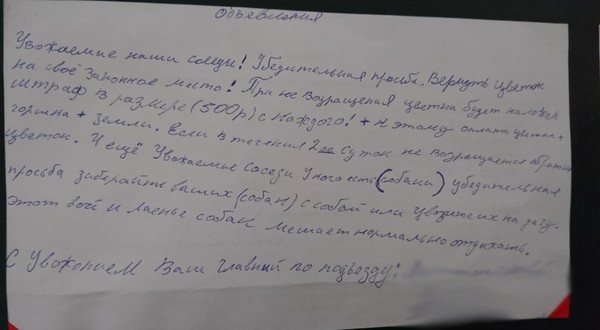 Объевления
Уважаемые наши соседи! Убедительная просьба. Вернуть цветок
на своё законное место! При не возвращения цветка будет наложен
штраф в размере (500р) с каждого! + к этому оплата цветка +
горшка + земли. Если в течения 2ее суток не возвращается обратно
цветок. И ещё Уважаемые соседи у кого есть (собаки) убедительная
просьба забирайте ваших (собак) с собой или увозите их на дачу.
этот вой и лаенье собак мешает нормально отдыхать.
С Уважением Ваш главный по подъезду: